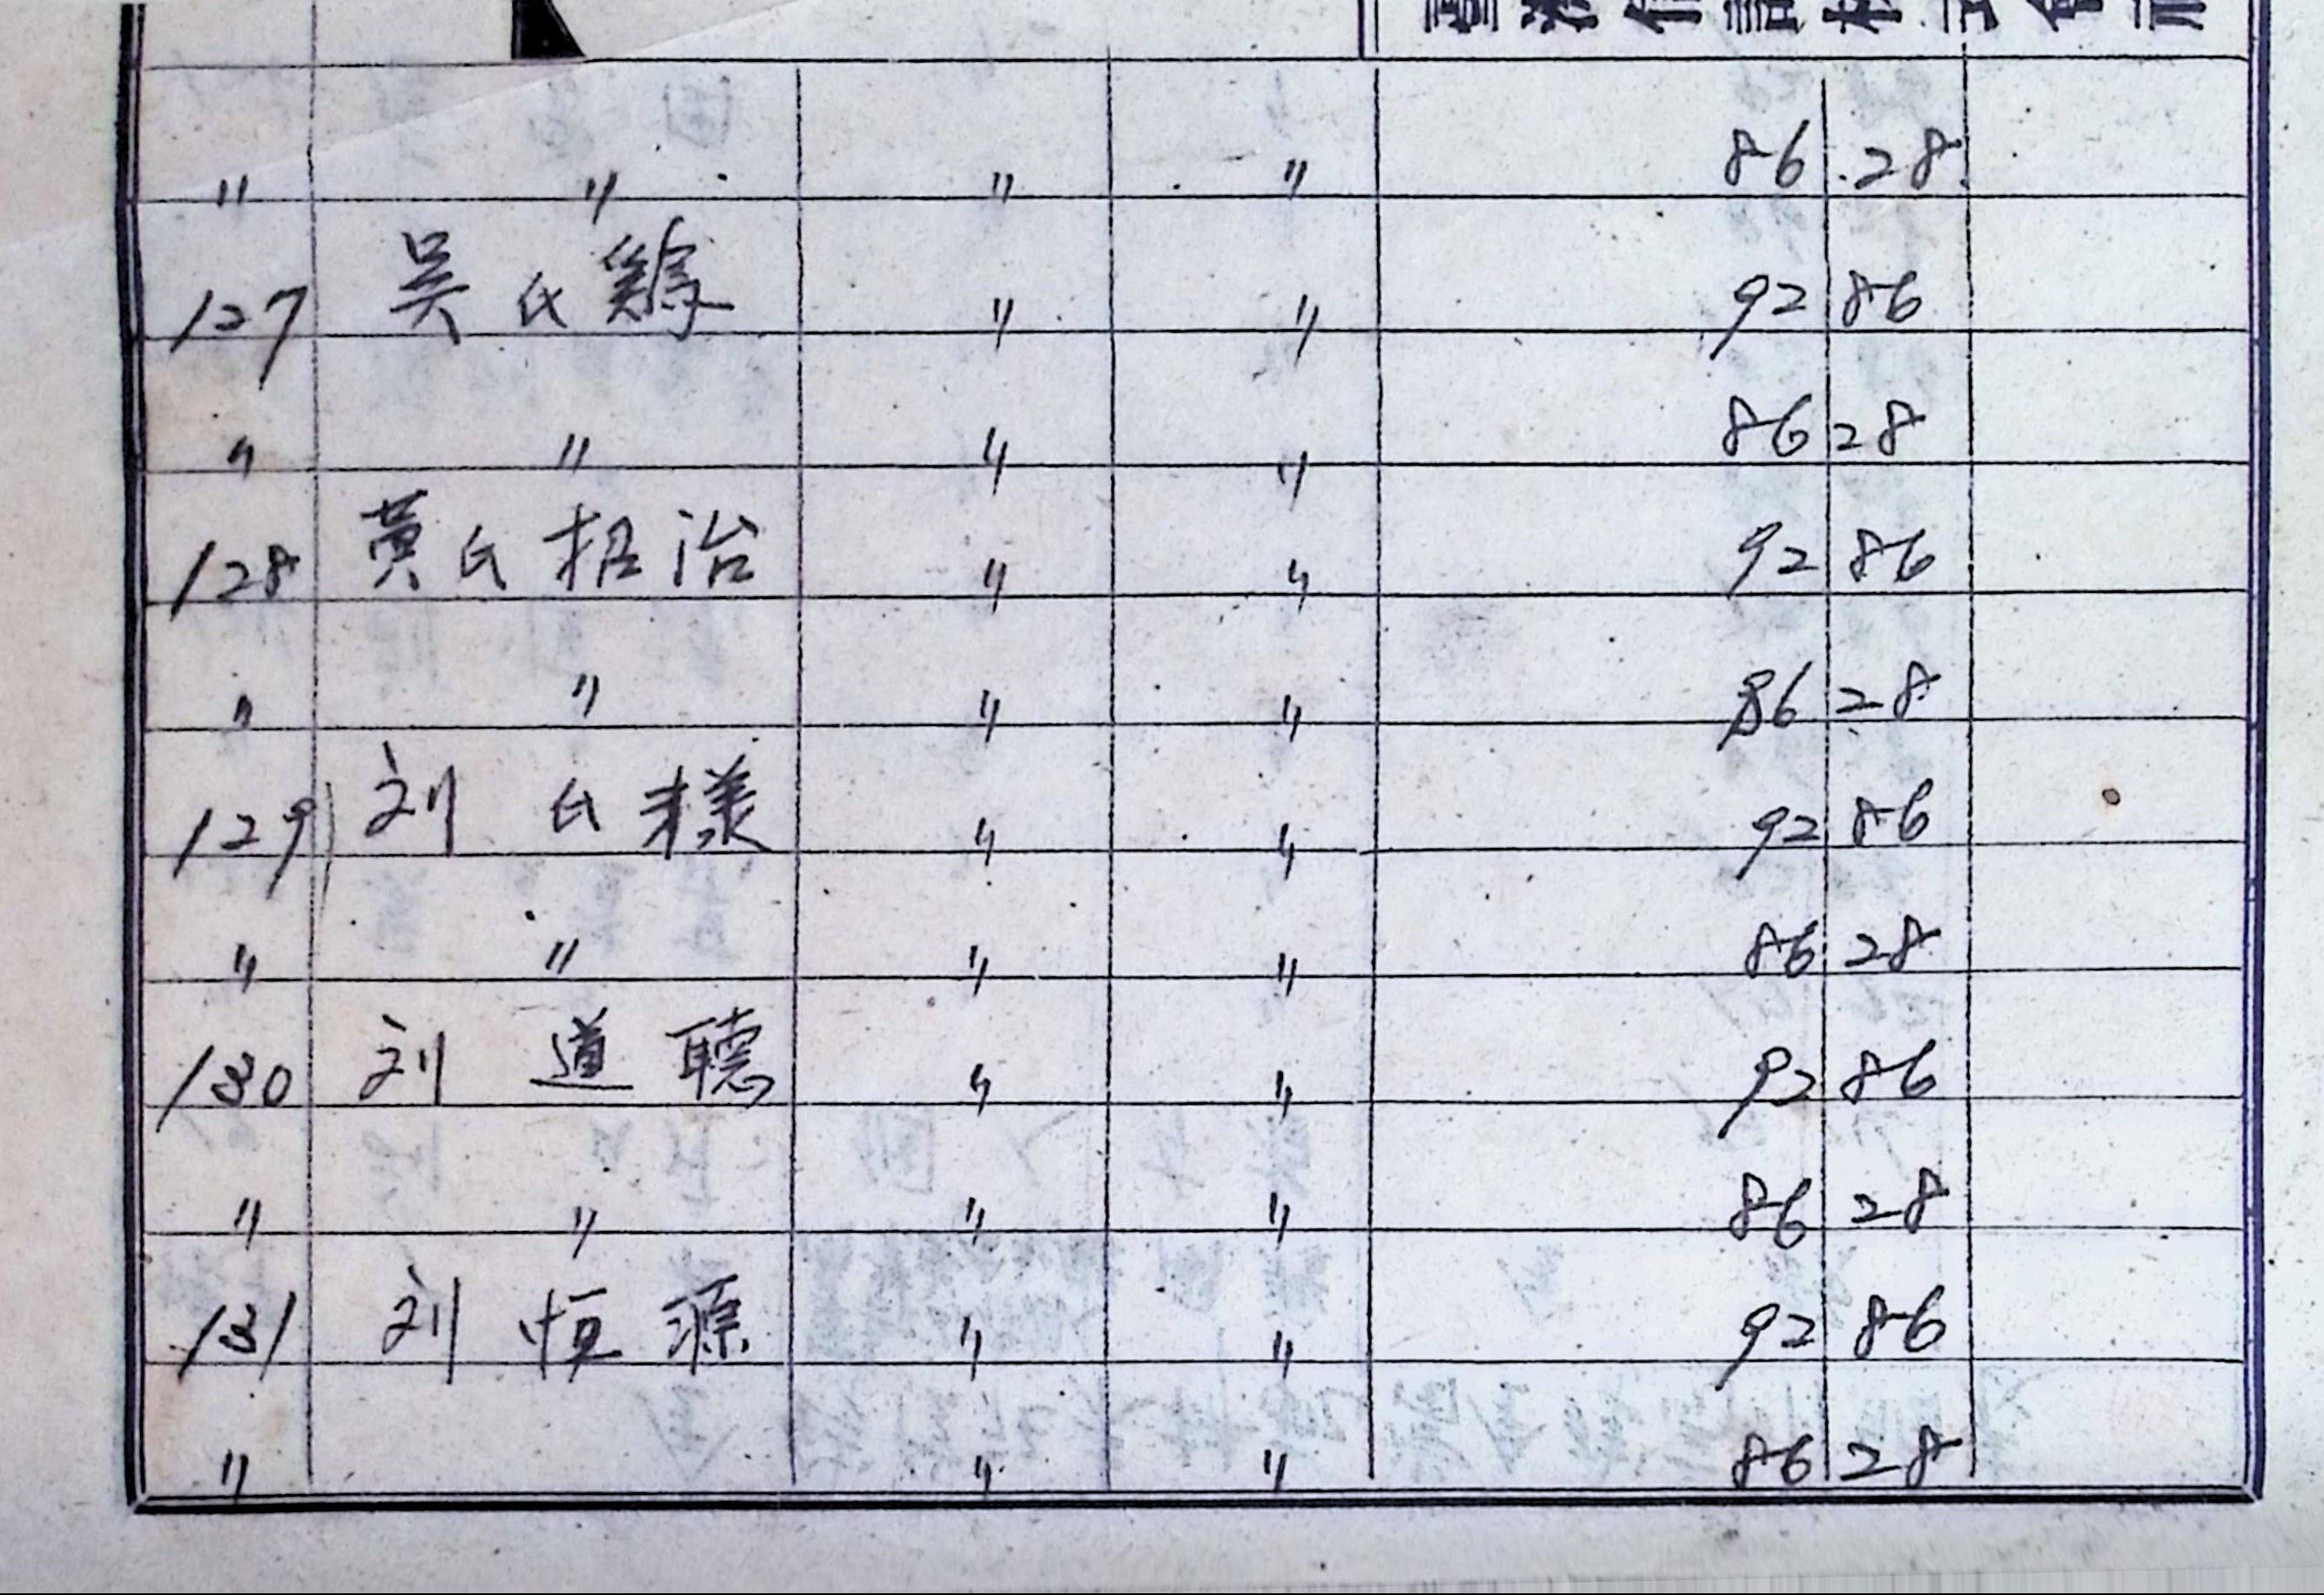 〃 〃 〃 〃 86 28
127 吳氏 〃 〃 92 86
〃 〃 〃 〃 86 28
128 黄氏招治 〃 〃 92 86
〃 〃 〃 〃 86 28
129 刘氏様 〃 〃 92 86
〃 〃 〃 〃 86 28
130 刘道聽 〃 〃 92 86
〃 〃 〃 〃 86 28
131 刘恒源 〃 〃 92 86
〃 〃 〃 86 28